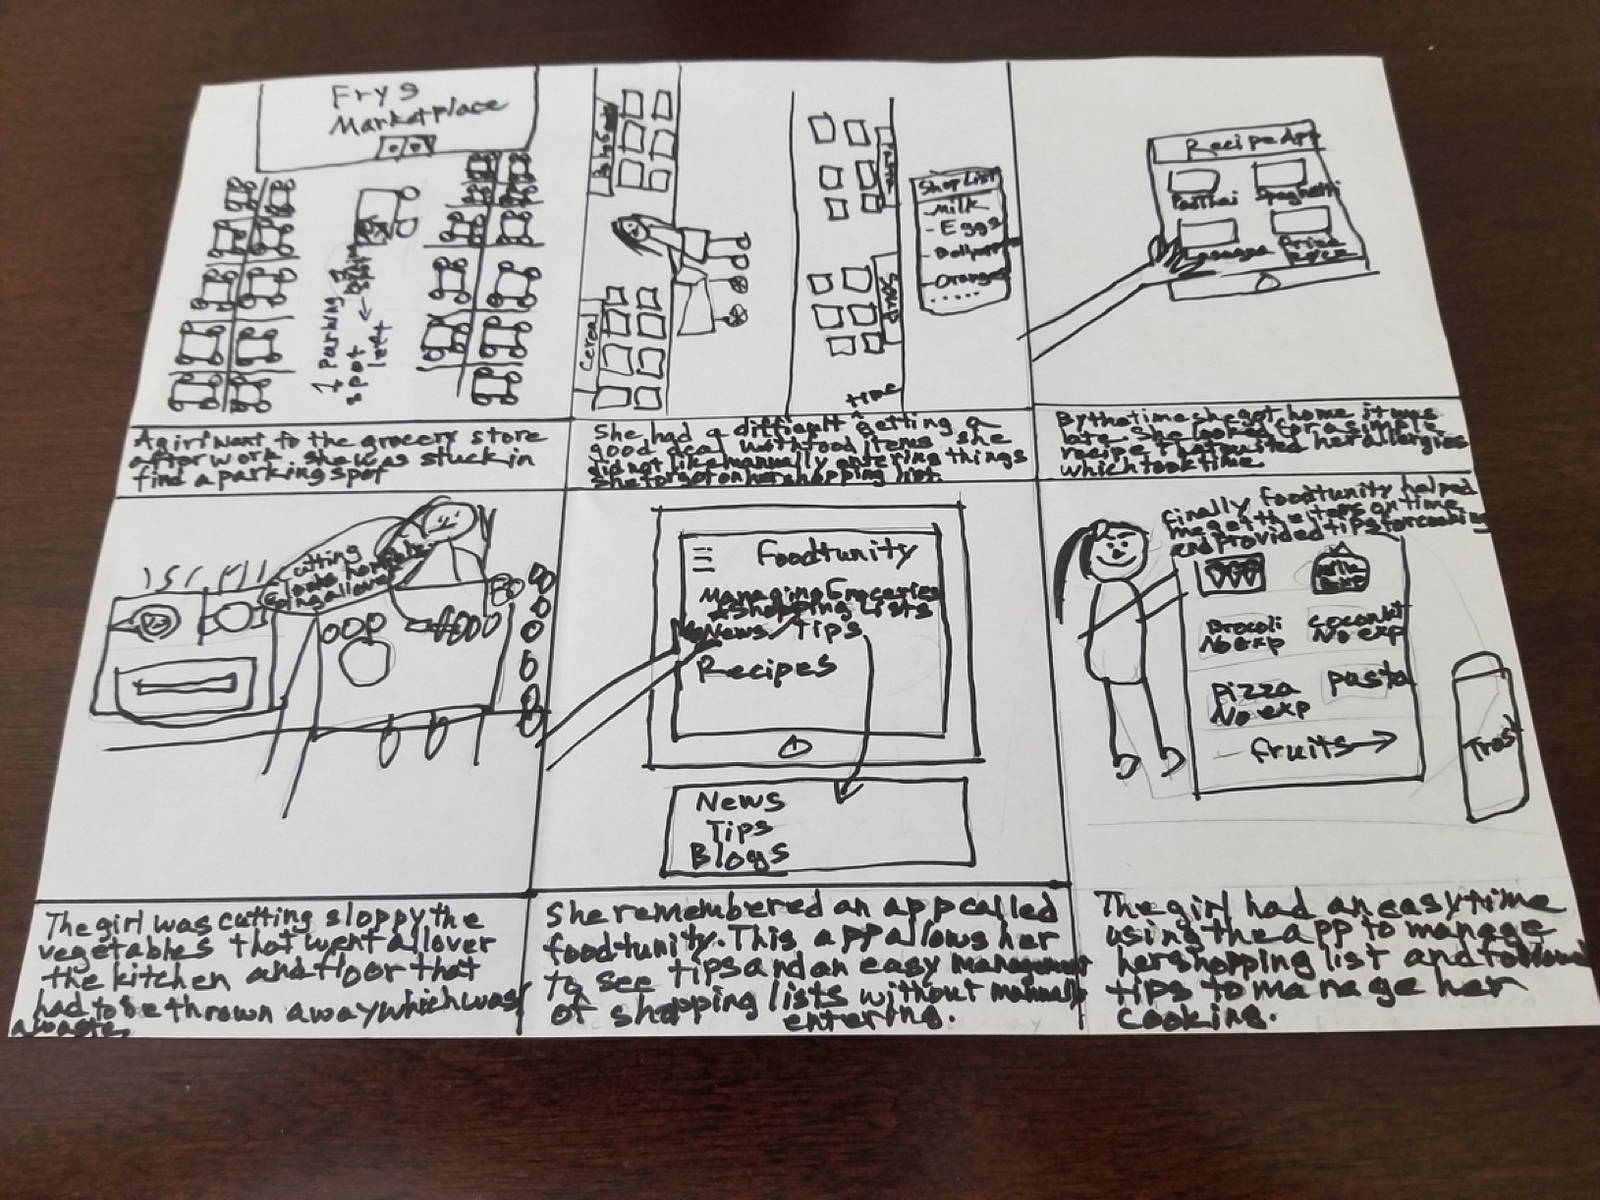 Frys
Marketplace
1 Parking
spot
left
A girl went to the grocery store
after work. She was stuck in
find a parking spot
Cereal
Soup
Shop List
- Milk
- Eggs
Oranges
.....
time
She had a difficult getting a
good deal with food items. She
did not like manually entering things
She forgot on her shopping list.
Recipe App
Spaghetti
Lasagna
By the time she got home it was
late. She looked for a simple
recipe that suited her allergies
which took time.
cutting
going all over
The girl was cutting sloppy the
vegetables that went all over
the kitchen and floor that
had to be thrown away which was
a waste.
Foodtunity
Managing Groceries
Shopping Lists
News / Tips
Recipes
News
Tips
Blogs
She remembered an app called
foodtunity. This app allows her
to see tips and an easy management
of shopping lists without manually
entering.
Finally foodtunity helped
me get the items on time
and provided tips for cooking
Brocoli
No exp
coconut
No exp
pizza
No exp
pasta
fruits
Tras
The girl had an easy time
using the app to manage
her shopping list and followed
tips to manage her
cooking.